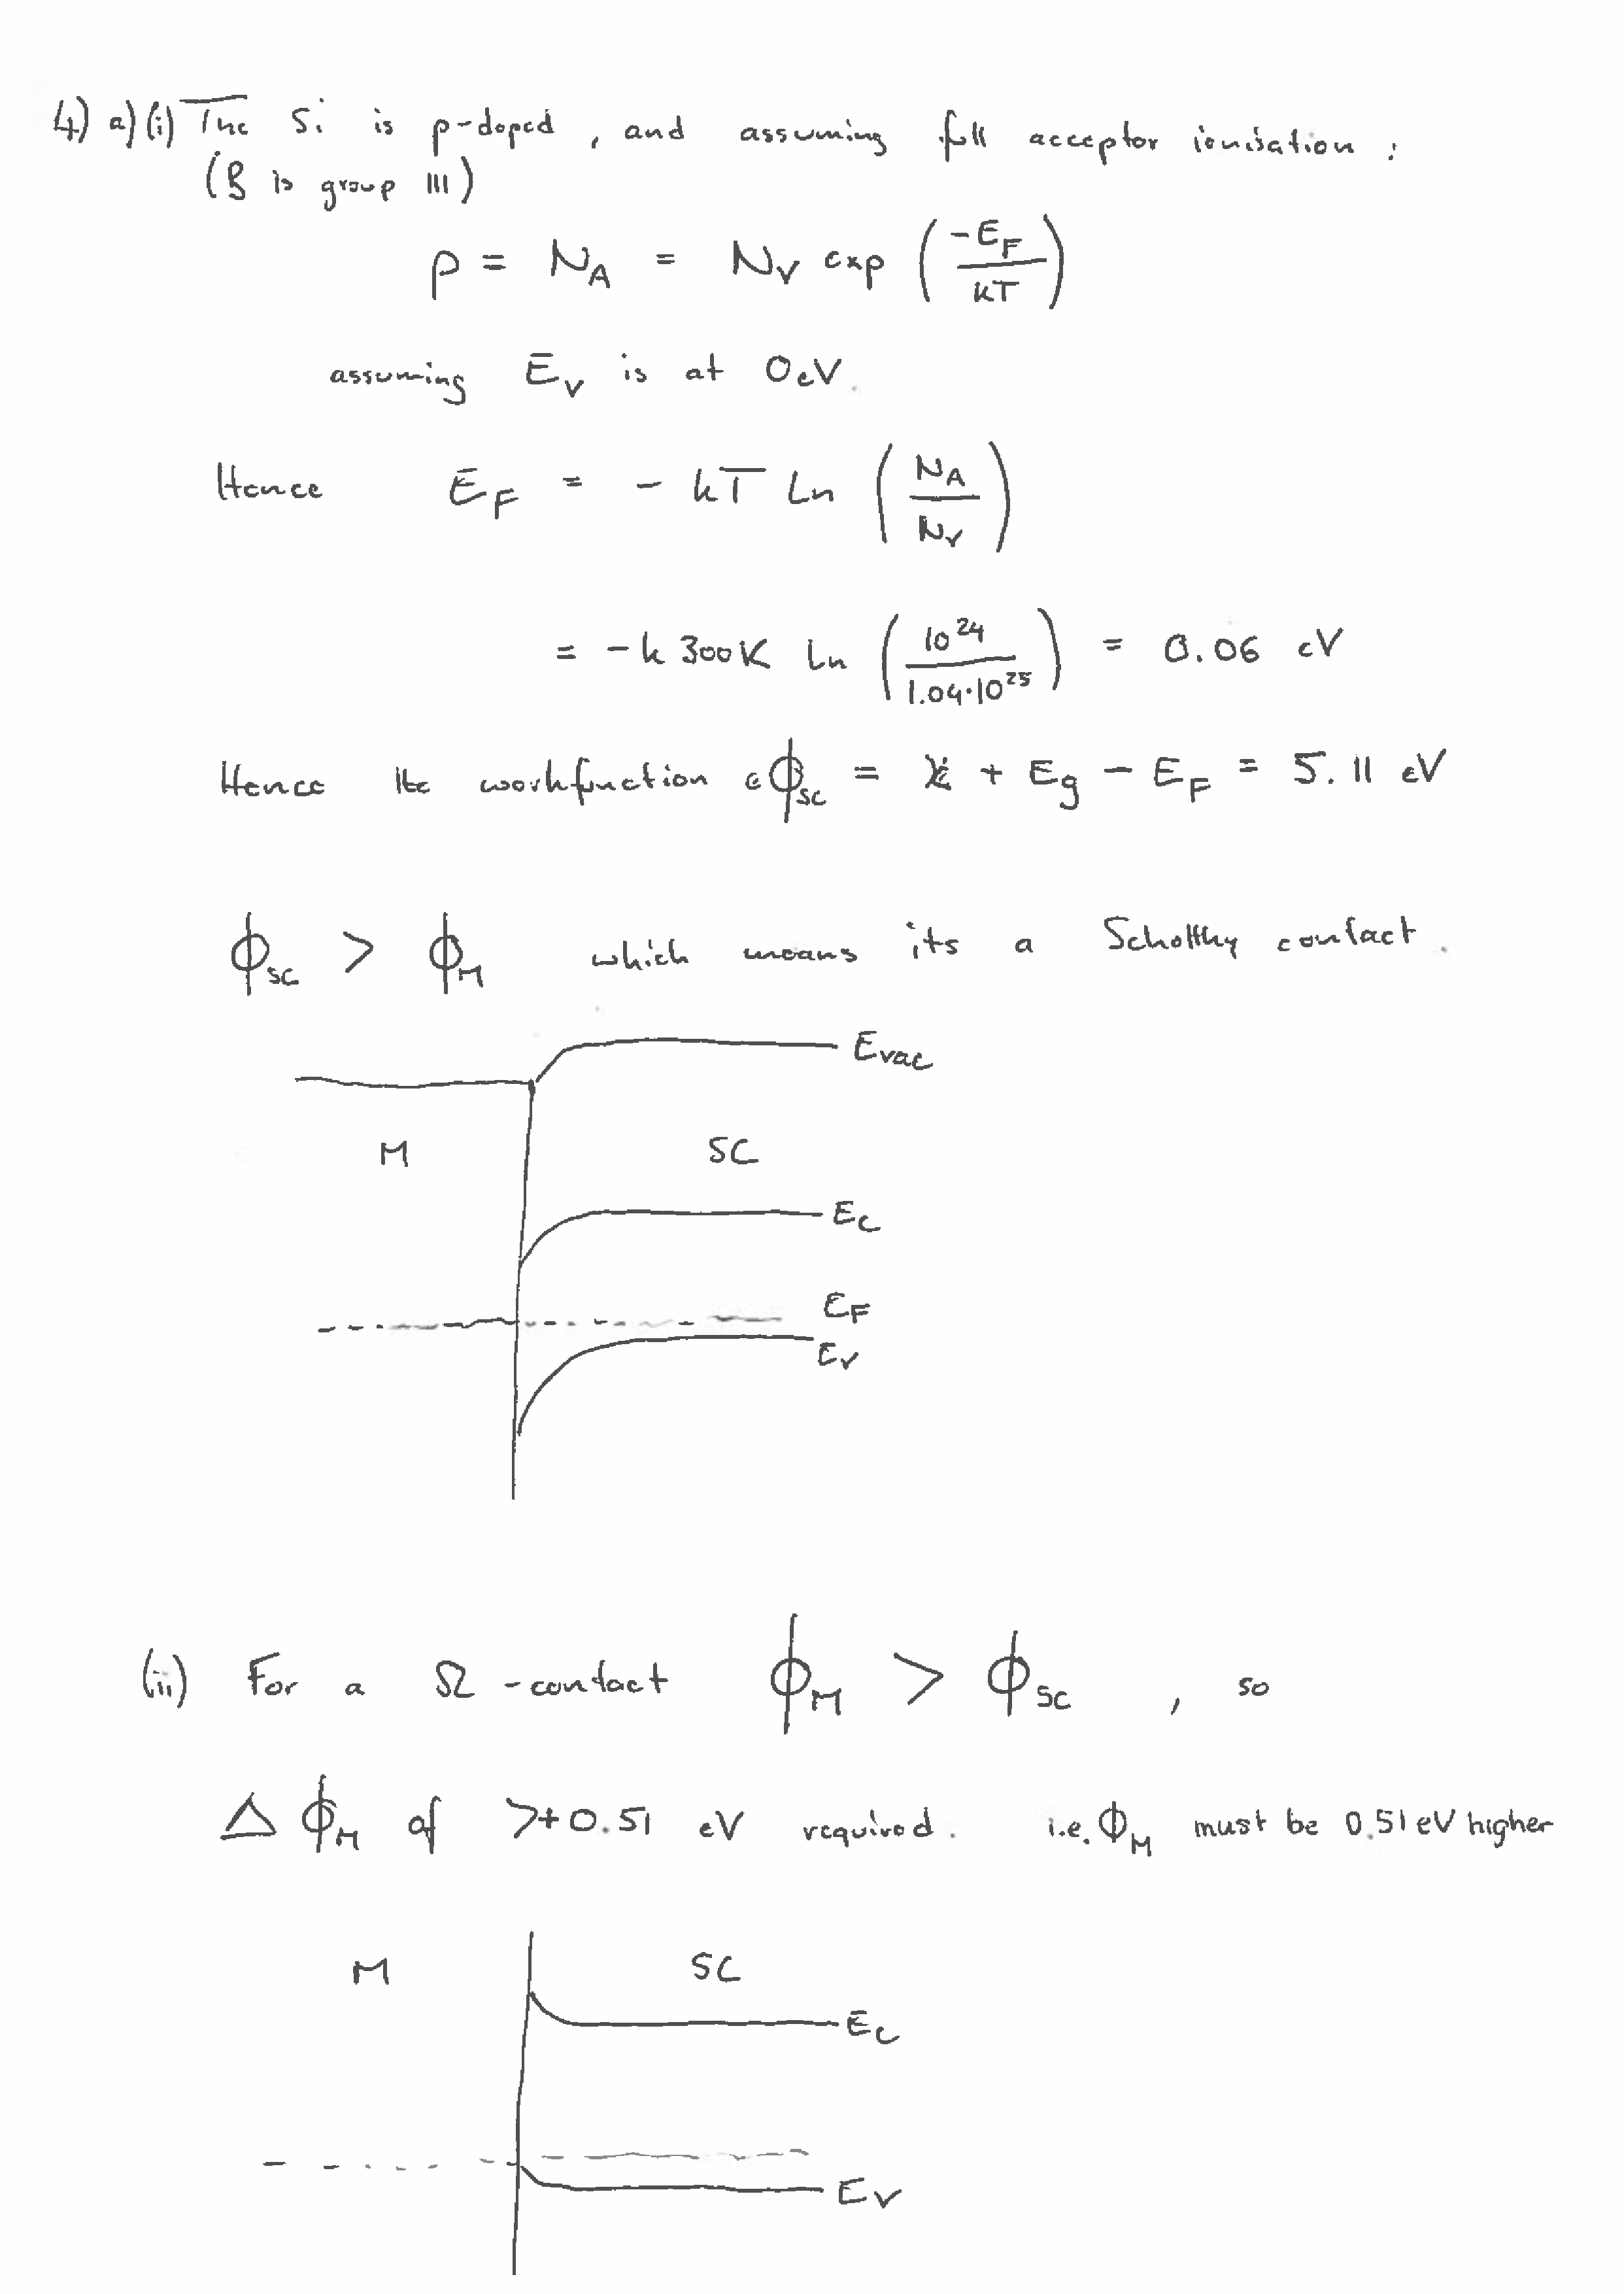 4) a)(i) The Si is p-doped, and assuming full acceptor ionisation:
(B is group III)
p = N_A = N_V exp (-E_F / kT)
assuming E_V is at 0eV.
Hence E_F = - kT Ln (N_A / N_V)
= -k 300K Ln (10^24 / 1.04·10^25) = 0.06 eV
Hence the workfunction eϕ_SC = χ + E_g - E_F = 5.11 eV
ϕ_SC > ϕ_M which means its a Schottky contact.
E_vac
M SC
E_C
E_F
E_V
(ii) For a Ω-contact ϕ_M > ϕ_SC, so
Δ ϕ_M of >+0.51 eV required. i.e. ϕ_M must be 0.51 eV higher
M SC
E_C
E_V